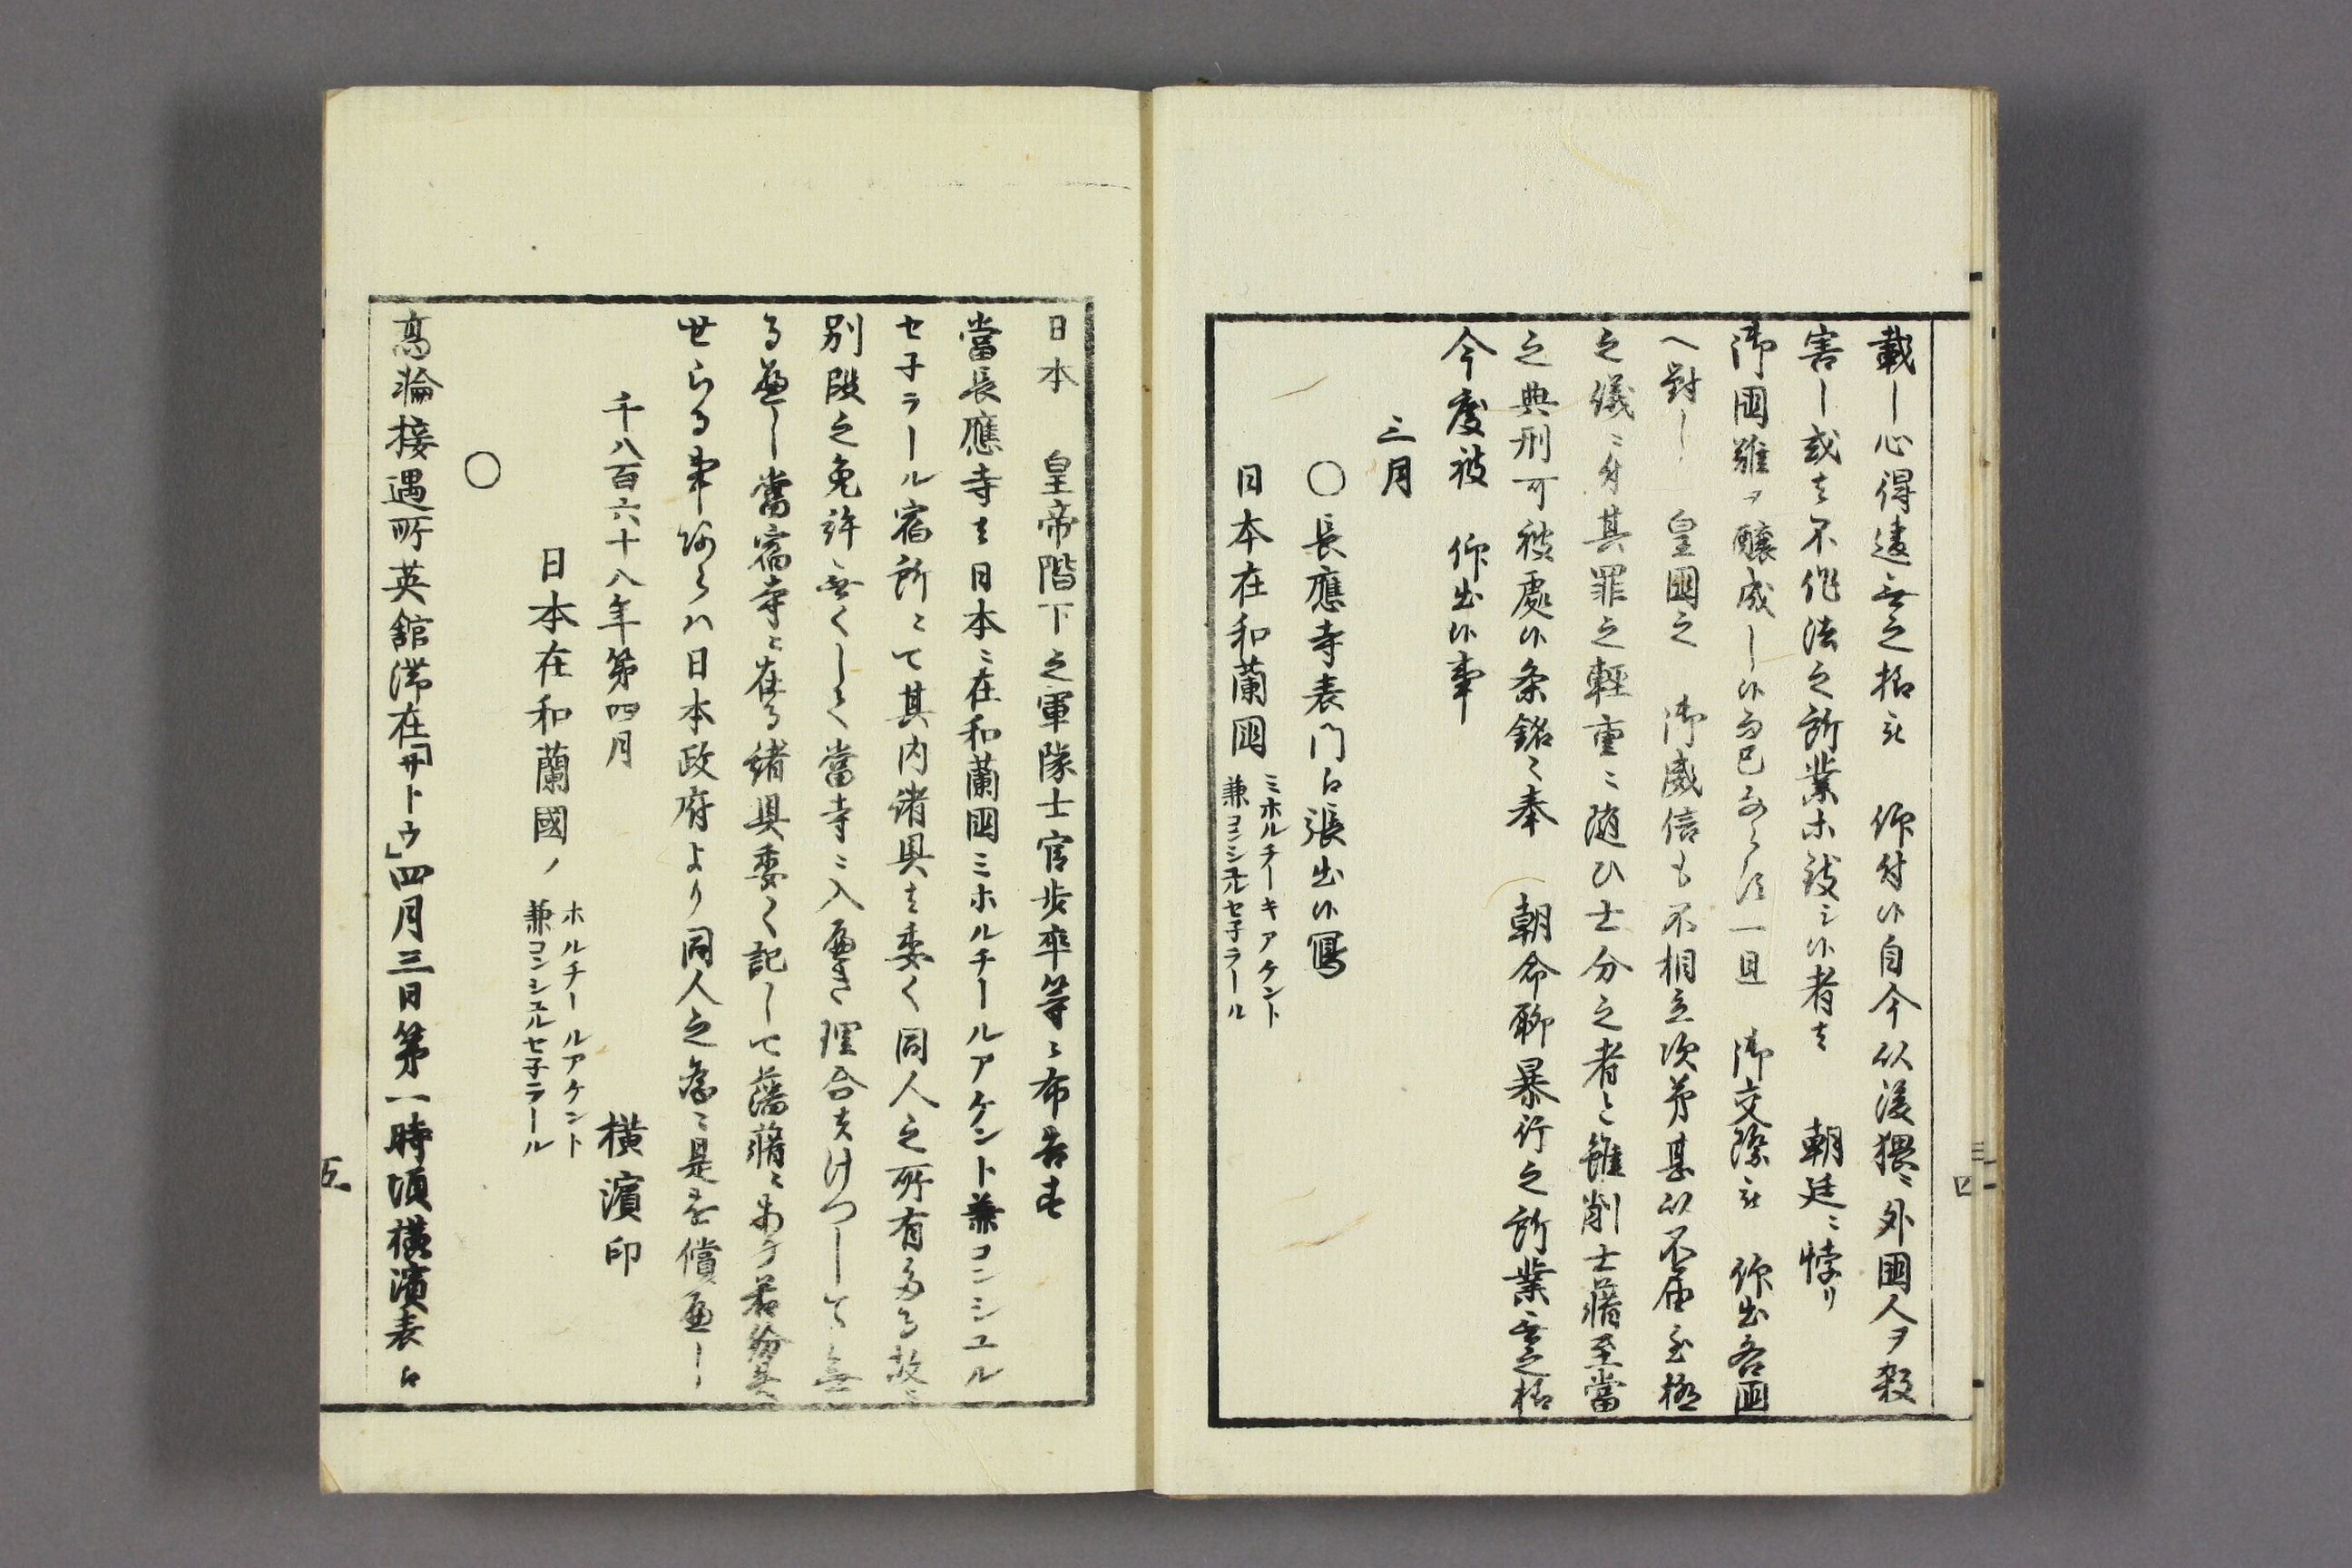 載し心得違無之様被　仰付候自今以後猥ニ外国人ヲ殺
害し或は不作法之所業ホ致シ候者は　朝廷ニ悖リ
御国難ヲ醸成し候而已ならす一旦　御交際被　仰出各国
へ対し　皇国之　御威信も不相立次第甚以不届至極
之儀ニ付其罪之軽重ニ随ひ士分之者と雖削士籍至当
之典刑可被処候条銘々奉　朝命聊暴行之所業無之様
今度被　仰出候事
三月
○長應寺表門ゟ張出候写
日本在和蘭国　ミホルチーキアケント
兼コンシユルセ子ラール
日本　皇帝階下之軍隊士官歩卒等ニ布告す
當長應寺は日本ニ在和蘭国ミホルチールアケント兼コンシユル
セ子ラール宿所ニて其内諸具は委く同人之所有たる故ニ
別段之免許無くして當寺ニ入へき理合はけつして無
る可し當宿寺ニ在る諸具委く記して
せらる事あらハ日本政府より同人之為ニ是を償可し
千八百六十八年第四月　横濱印
日本在和蘭國ノ　ホルチールアケント
兼コンシユルセ子ラール
○
高輪接遇所英舘滞在「サトウ」四月三日第一時頃横濱表ゟ